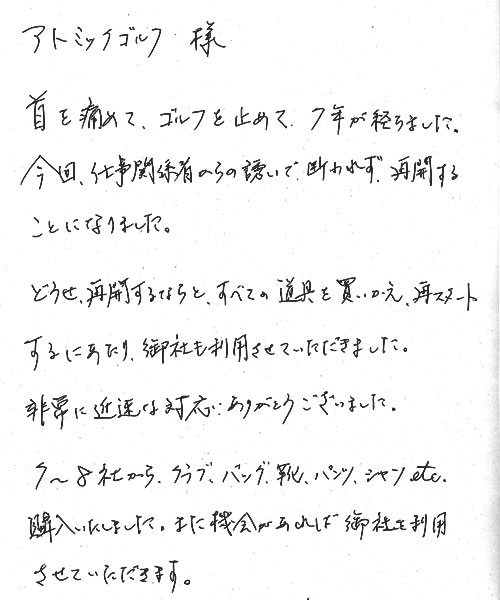 アトミックゴルフ 様
首を痛めて、ゴルフを止めて、7年が経ちました。
今回、仕事関係者からの誘いで、断われず、再開する
ことになりました。
どうせ、再開するならと、すべての道具を買いかえ、再スタート
するにあたり、御社を利用させていただきました。
非常に迅速な対応、ありがとうございました。
7〜8社から、クラブ、バッグ、靴、パンツ、シャツ etc.
購入いたしました。また機会があれば御社を利用
させていただきます。